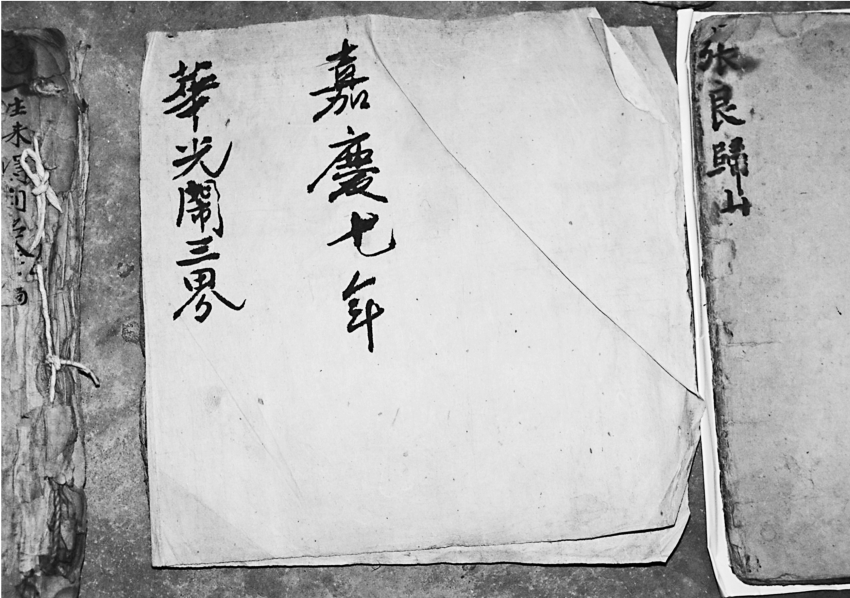 嘉慶七年
華光鬧三界
張良歸山